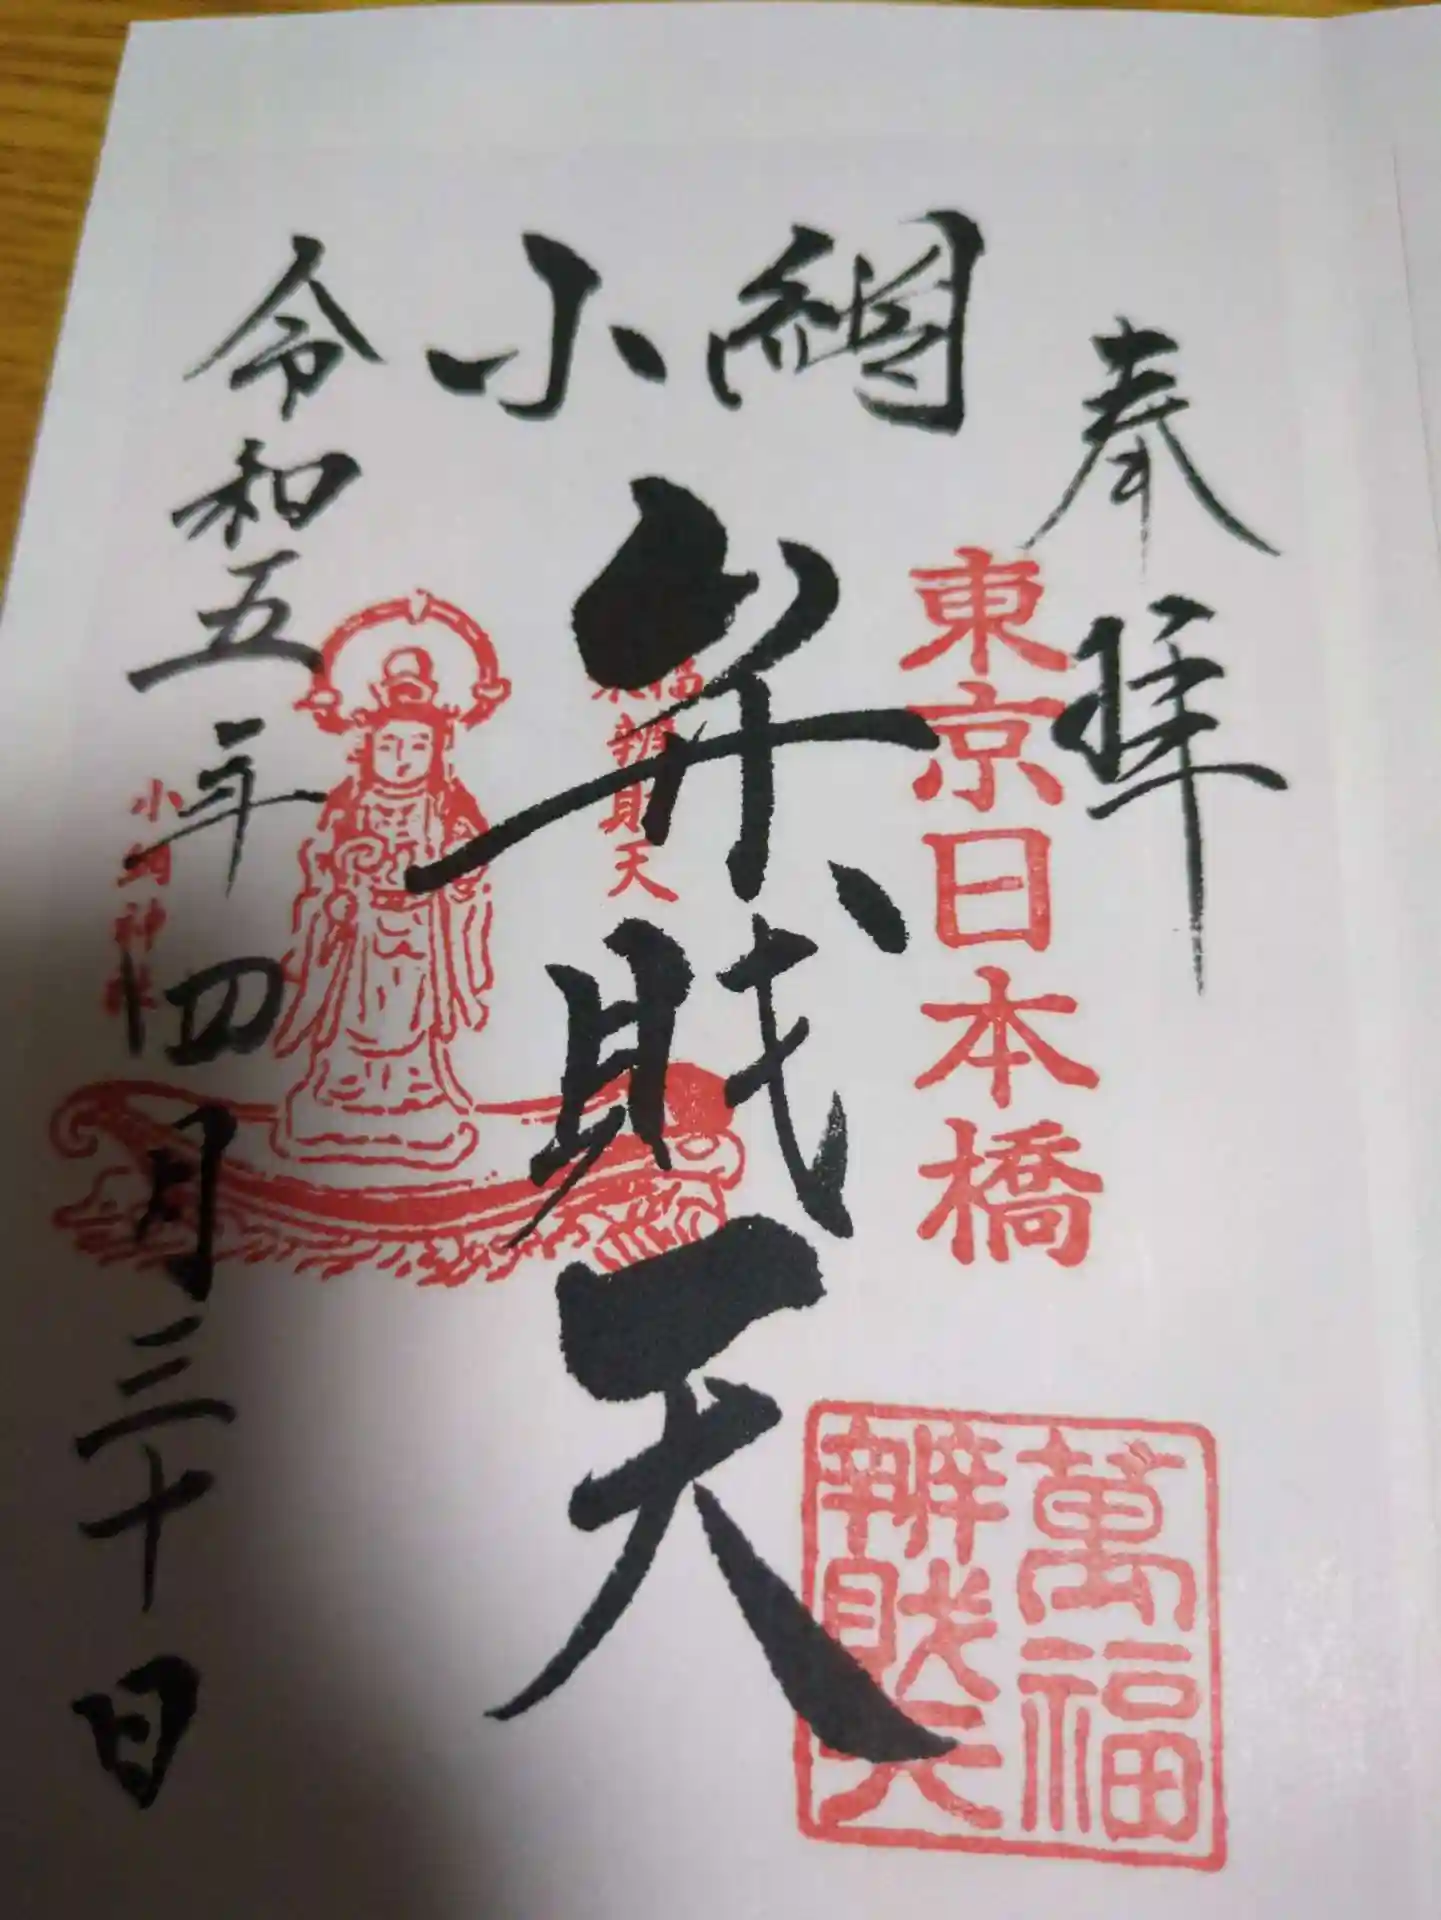 奉拝
東京日本橋
萬福
辨財天
小網
弁財天
福
辨財天
小網神社
令和五年四月三十日